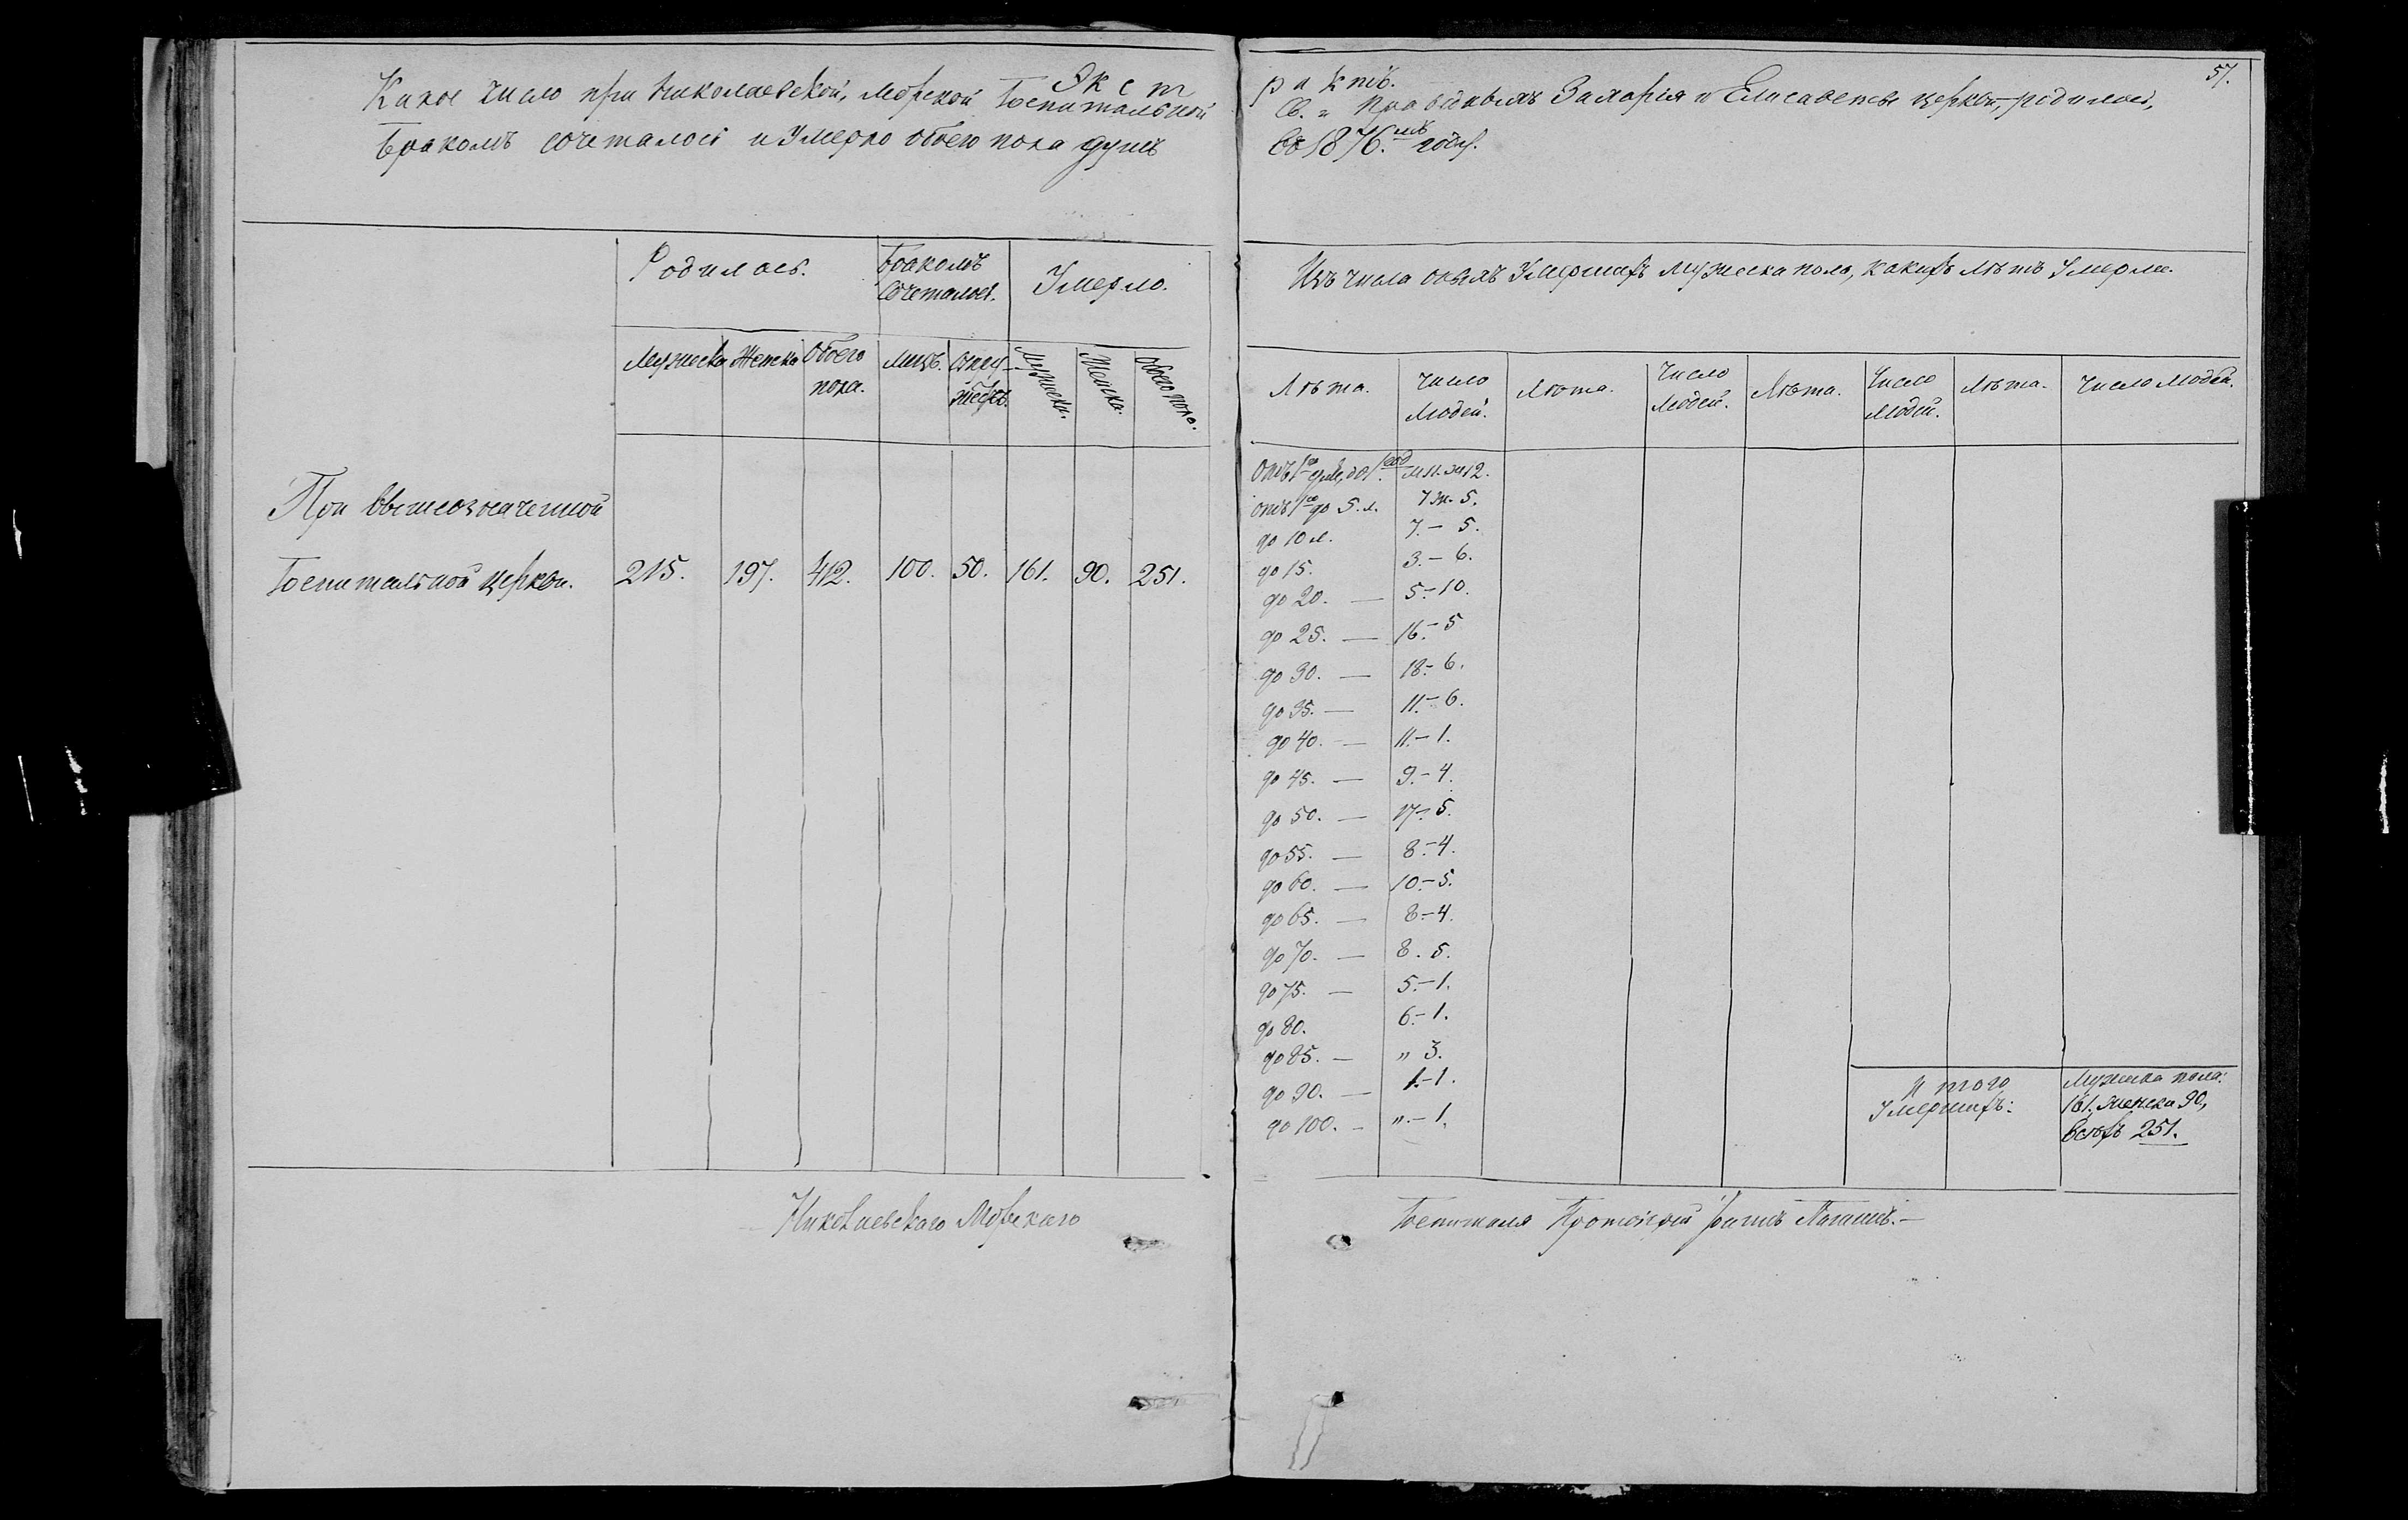 Экст
Какое число при Николаевской, Морской Госпитальной
бракомъ сочеталось и умерло обоего пола душъ
Родилось.
Бракомъ
сочеталось.
Умерло.
Мужеска
Женска
Обоего
пола.
Лицъ.
Супру-
жествъ.
Мужеска.
Женска.
Обоего пола.
При вышеозначенной
Госпитальной церкви. 215. 197. 412. 100. 50. 161. 90. 251.
Николаевскаго Морскаго
57.
рактъ.
Св. Праведныхъ Захарія и Елисаветы церкви, родилось,
въ 1876.мъ году.
Изъ числа оныхъ умершихъ мужеска пола, какихъ лѣтъ умерли.
Лѣта.
Число
людей.
Лѣта.
Число
людей.
Лѣта.
Число
людей.
Лѣта.
Число людей.
до 1. м 11. ж 12.
отъ 1го до 5. л. 7 ж. 5.
до 10 л. 7.- 5.
до 15. 3.- 6.
до 20. — 5.- 10.
до 25. — 16.- 5
до 30. — 18.- 6.
до 35. — 11.- 6.
до 40. — 11.- 1.
до 45. — 9.- 4.
до 50. — 17.- 5.
до 55. — 8.- 4.
до 60. — 10.- 5.
до 65. — 8.- 4.
до 70. — 8. 5.
до 75. — 5.- 1.
до 80. 6.- 1.
до 85. — „ 3.
до 90. — 1.- 1.
до 100. - „.- 1.
Итого
умершихъ:
Мужеска пола:
161. женска 90,
всѣхъ 251.
Госпиталя Протоіерей